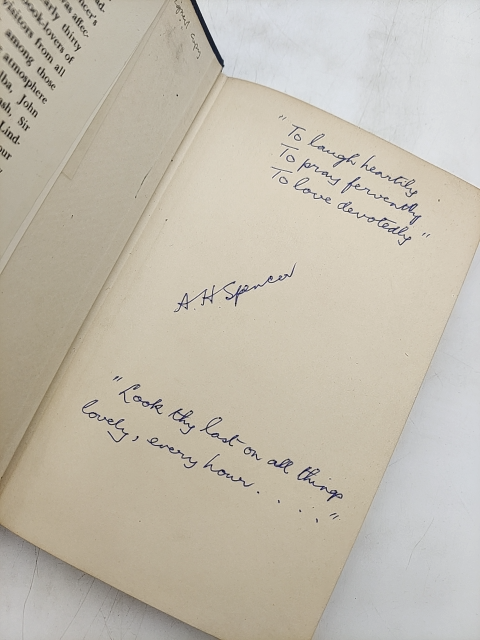 arly thirty
book-lovers of
visitors from all
among those
atmosphere
lba, John
ash, Sir
Lind-
our
"To laugh heartily
To pray fervently
To love devotedly"
A.H. Spencer
"Look thy last on all things
lovely, every hour....."